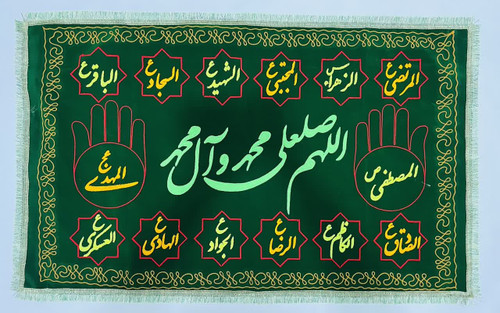 المرتضی ع الزهراء س المجتبی ع الشهید ع السجاد ع الباقر ع
اللهم صل علی محمد و آل محمد
المصطفی ص
المهدی عج
الصادق ع الکاظم ع الرضا ع الجواد ع الهادی ع العسکری ع